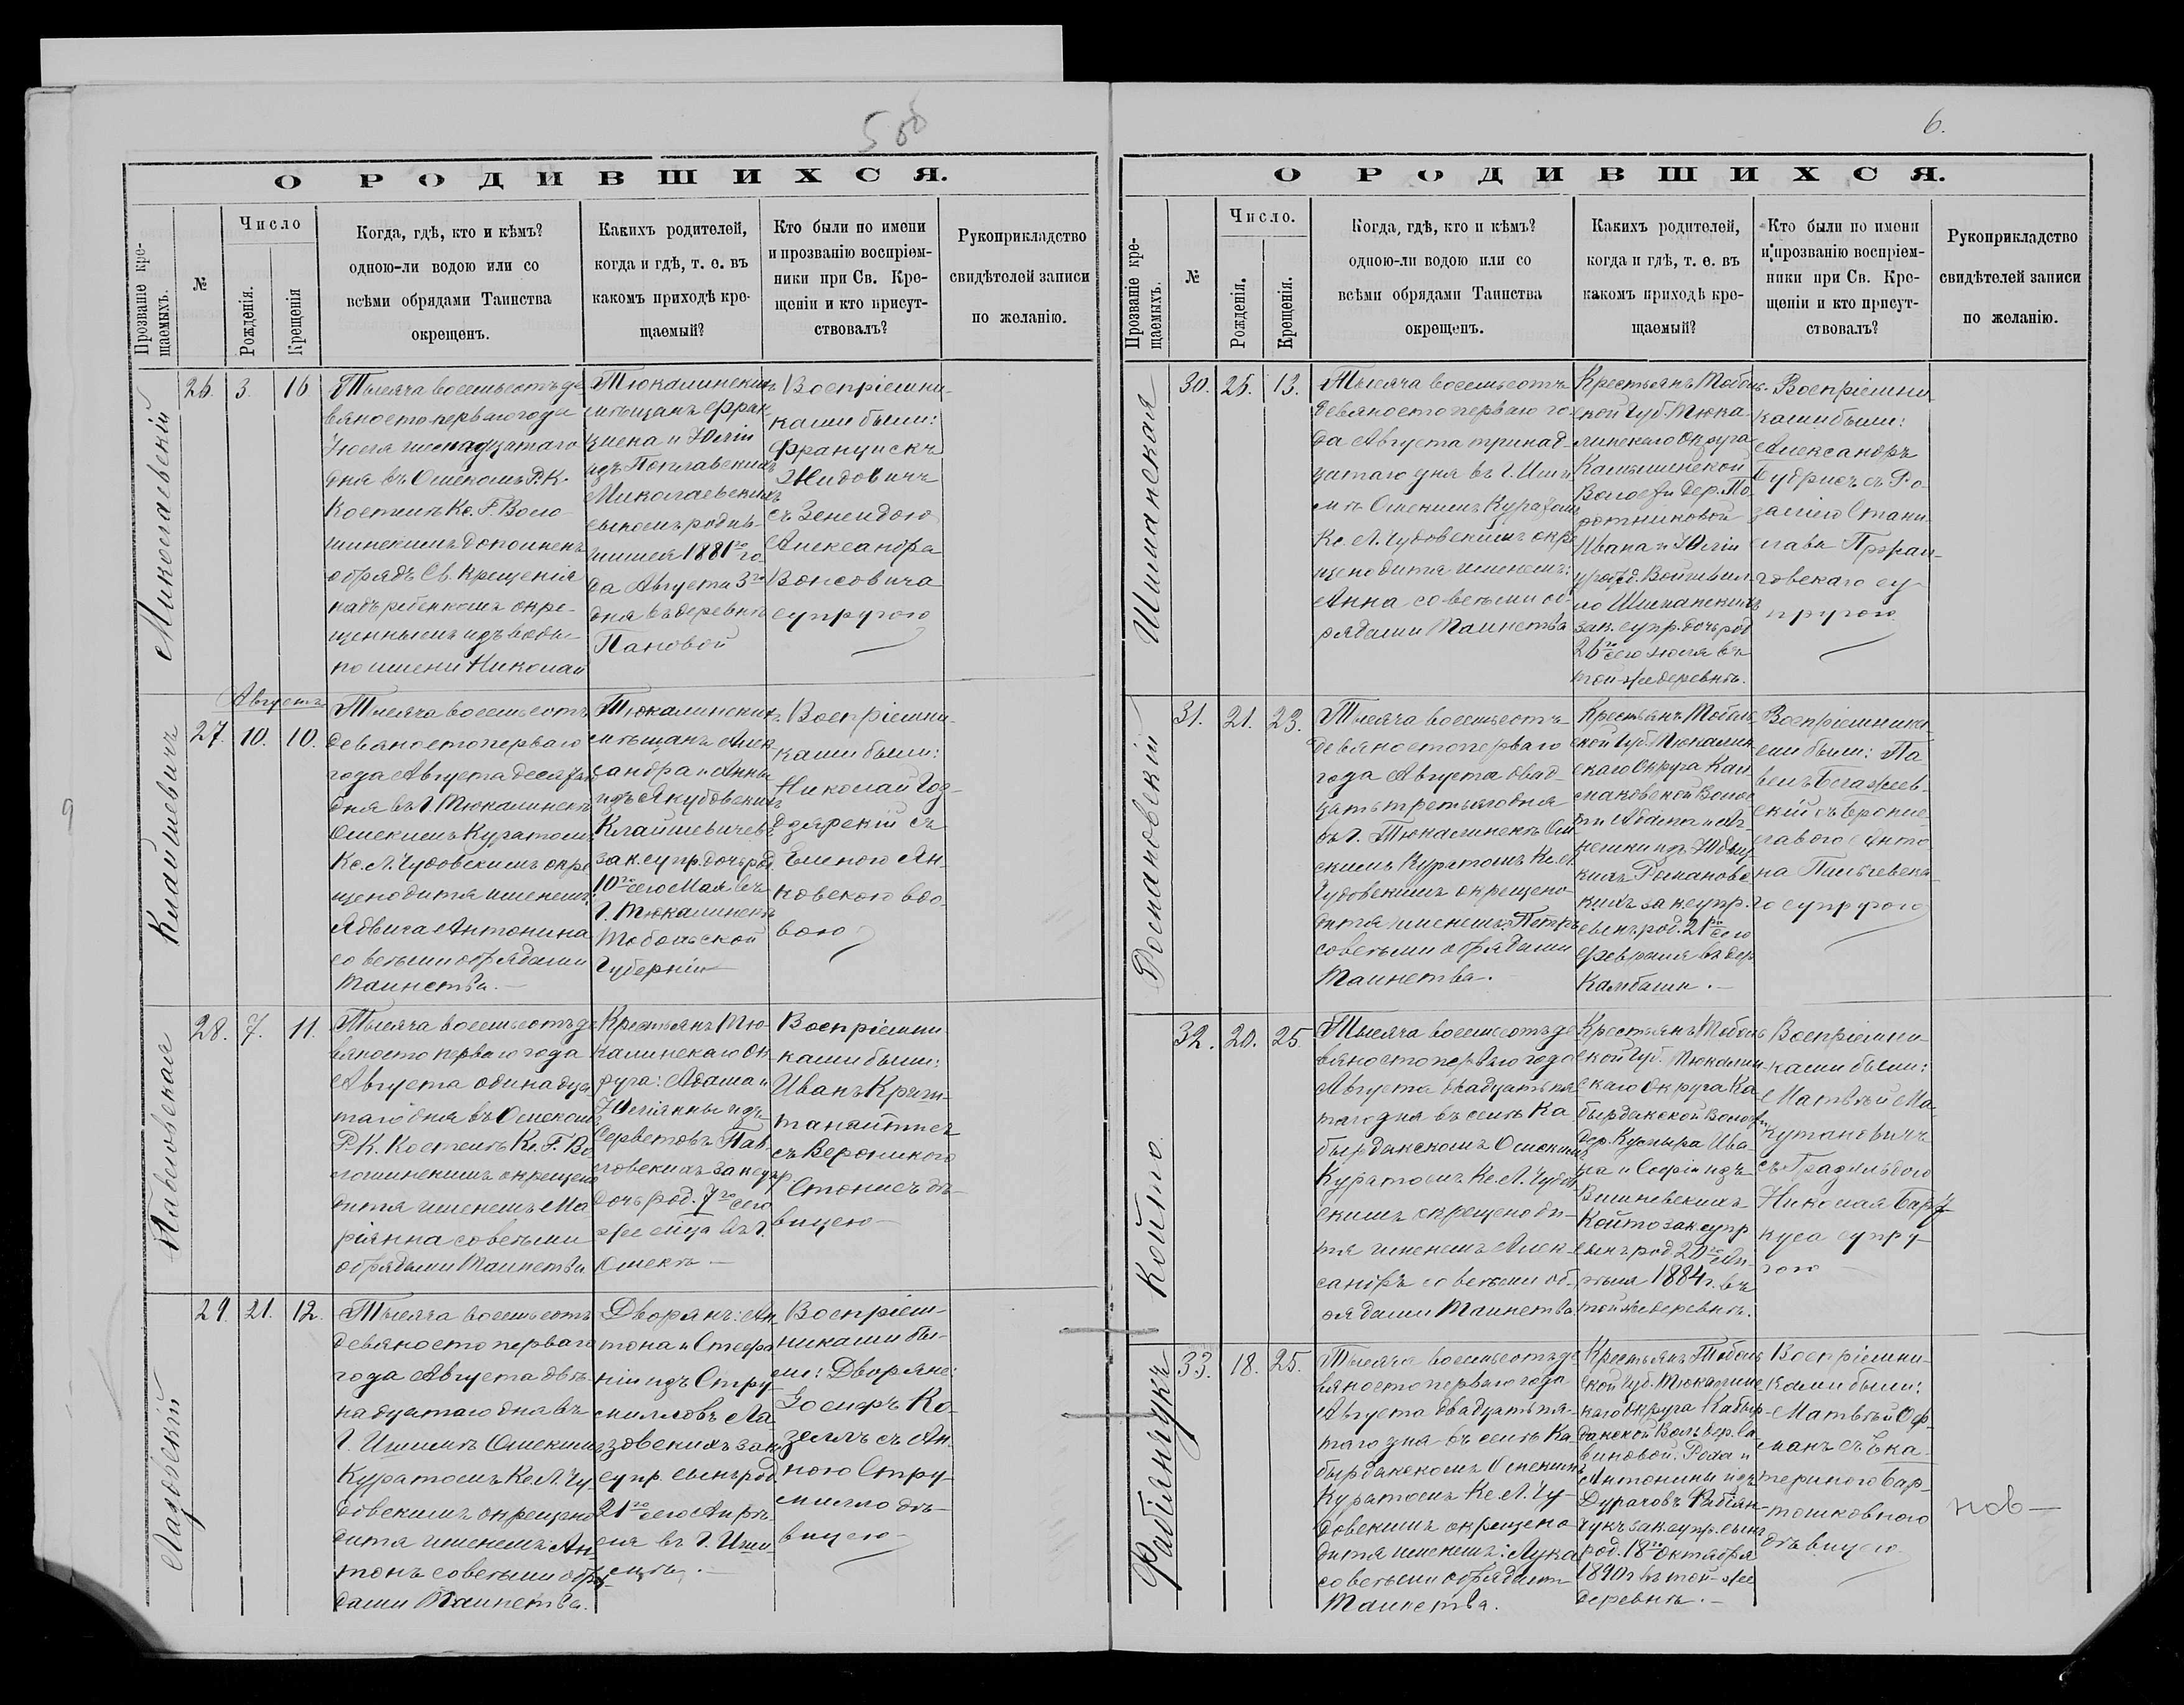 5 об
О РОДИВШИХСЯ.
Прозваніе кре-
щаемыхъ.
№
Число
Рожденія.
Крещенія
Когда, гдѣ, кто и кѣмъ?
одною-ли водою или со
всѣми обрядами Таинства
окрещенъ.
Какихъ родителей,
когда и гдѣ, т. е. въ
какомъ приходѣ кре-
щаемый?
Кто были по имени
и прозванію воспріем-
ники при Св. Кре-
щеніи и кто присут-
ствовалъ?
Рукоприкладство
свидѣтелей записи
по желанію.
Миколаевскій
26. 3. 16
Тысяча восемьсотъ де-
вяносто перваго года
Іюля шестнадцатаго
дня въ Омскомъ Р.К.
Костелѣ Кс. Г. Воло-
шинскимъ дополненъ
обрядъ Св. Крещенія
надъ ребенкомъ окре-
щеннымъ изъ воды
по имени Николай
Тюкалинскихъ
мѣщанъ Фран
циска и Юліи
изъ Поплавскихъ
Миколаевскихъ
сыномъ родив-
шимся 1881го го-
да Августа 3го
дня въ деревнѣ
Пановой
Воспріемни-
ками были:
Францискъ
Жидовичъ
съ Зенеидою
Александра
Вонсовича
супругою
Августъ
Клаишевичъ
27. 10. 10.
Тысяча восемьсотъ
девяносто перваго
года Августа десятаго
дня въ Г. Тюкалинскѣ
Омскимъ Куратомъ
Кс. Л. Чудовскимъ окре
щено дитя именемъ
Ядвига Антонина
со всѣми обрядами
Таинства.
Тюкалинскихъ
мѣщанъ Алек
сандра и Анны
изъ Якубовскихъ
Клаишевичевъ
зак. супр. дочь род.
10го сего Мая въ
Г. Тюкалинскѣ
Тобольской
Губерніи
Воспріемни-
ками были:
Николай Год-
дзярскій съ
Еленою Ян-
ковскою вдо-
вою
Павловская
28. 7. 11.
Тысяча восемьсотъ де
вяносто перваго года
Августа одинадца
таго дня въ Омскомъ
Р.К. Костелѣ Кс. Г. Во
лошинскимъ окрещено
дитя именемъ Ма
ріанна со всѣми
обрядами Таинства
Крестьянъ Тю-
калинскаго Ок
руга: Адама и
Юліянны изъ
Серветовъ Пав
ловскихъ зак. супр.
дочь род. 7го сего
же м-ца въ Г.
Омскѣ
Воспріемни
ками были:
Иванъ
съ Вероникою
Стонисъ дѣ-
вицею
Лазовскій
29. 21. 12.
Тысяча восемьсотъ
девяносто перваго
года Августа двѣ-
надцатаго дня въ
Г. Ишимѣ Омскимъ
Куратомъ Кс. Л. Чу-
довскимъ окрещено
дитя именемъ Ан-
тонъ со всѣми обря-
дами Таинства.
Дворянъ: Ан
тона и Стефа
ніи изъ Стру
милловъ Ла
зовскихъ зак.
супр. сынъ род.
21го сего Апрѣ-
ля въ Г. Иши-
мѣ.
Воспріем-
никами бы-
ли: Дворяне:
Іосифъ Ко-
зеллъ съ Ан-
ною Стру-
милло дѣ-
вицею
6.
О РОДИВШИХСЯ.
Прозваніе кре-
щаемыхъ.
№
Число.
Рожденія.
Крещенія.
Когда, гдѣ, кто и кѣмъ?
одною-ли водою или со
всѣми обрядами Таинства
окрещенъ.
Какихъ родителей,
когда и гдѣ, т. е. въ
какомъ приходѣ кре-
щаемый?
Кто были по имени
и прозванію воспріем-
ники при Св. Кре-
щеніи и кто присут-
ствовалъ?
Рукоприкладство
свидѣтелей записи
по желанію.
Шиманская
30. 26. 13.
Тысяча восемьсотъ
девяносто перваго го-
да Августа тринад-
цатаго дня въ Г. Иши
мѣ Омскимъ Куратомъ
Кс. Л. Чудовскимъ окре
щено дитя именемъ:
Анна со всѣми об-
рядами Таинства
Крестьянъ Тоболь-
ской Губ. Тюка
линскаго Округа
Камышенской
Волости Дер.
Ивана и Юліи
Шиманскихъ
зак. супр. дочь род
26го сего Іюля въ
той-же деревнѣ.
Воспріемни
ками были:
Александръ
Будрисъ съ Ро-
заліею Стани-
слава
супругою
Романовскій
31. 21. 23.
Тысяча восемьсотъ
девяносто перваго
года Августа двад-
цать третьяго дня
въ Г. Тюкалинскѣ Ом
скимъ Куратомъ Кс. Л.
Чудовскимъ окрещено
дитя именемъ Петръ
со всѣми обрядами
Таинства.
Крестьянъ Тоболь
ской Губ. Тюкалин
скаго Округа
Волос
ти Адама и Аг-
нешки изъ
Романовс
кихъ зак. супр.
сынъ род. 21го сего
Февраля въ дер.
Воспріемника
ми были: Па
велъ
съ Брони-
славою Анто
на
го супругою
Който
32. 20. 25.
Тысяча восемьсотъ де
вяносто перваго года
Августа двадцать пя
таго дня въ селѣ Ка
бырдакскомъ Омскимъ
Куратомъ Кс. Л. Чудов
скимъ окрещено ди-
тя именемъ Алек-
сандръ со всѣми об-
рядами Таинства
Крестьянъ Тоболь
ской Губ. Тюкалин
скаго Округа Ка
бырдакской Волости
дер. Ива
на и Софіи изъ
Вишневскихъ
Който зак. супр
сынъ род 20го Ап-
рѣля 1884 г. въ
той же деревнѣ.
Воспріемни-
ками были:
Матвѣй Ма-
кутановичъ
съ
Николая
супру-
гою
Фабіянчукъ
33. 18. 25.
Тысяча восемьсотъ де
вяносто перваго года
Августа двадцать пя-
таго дня въ селѣ Ка
бырдакскомъ Омскимъ
Куратомъ Кс. Л. Чу-
довскимъ окрещено
дитя именемъ: Лука
со всѣми обрядами
Таинства.
Крестьянъ Тоболь
ской Губ. Тюкалинс
каго Округа Кабыр-
дакской Вол. дер. Са
виновой: и
Антонины изъ
Фабіян-
чукъ зак. супр. сынъ
род. 18го Октября
1890 г. въ той-же
деревнѣ.
Воспріемни-
ками были:
Матвѣй Оф-
манъ съ Ека-
териною Бар-
тошковною
дѣвицею